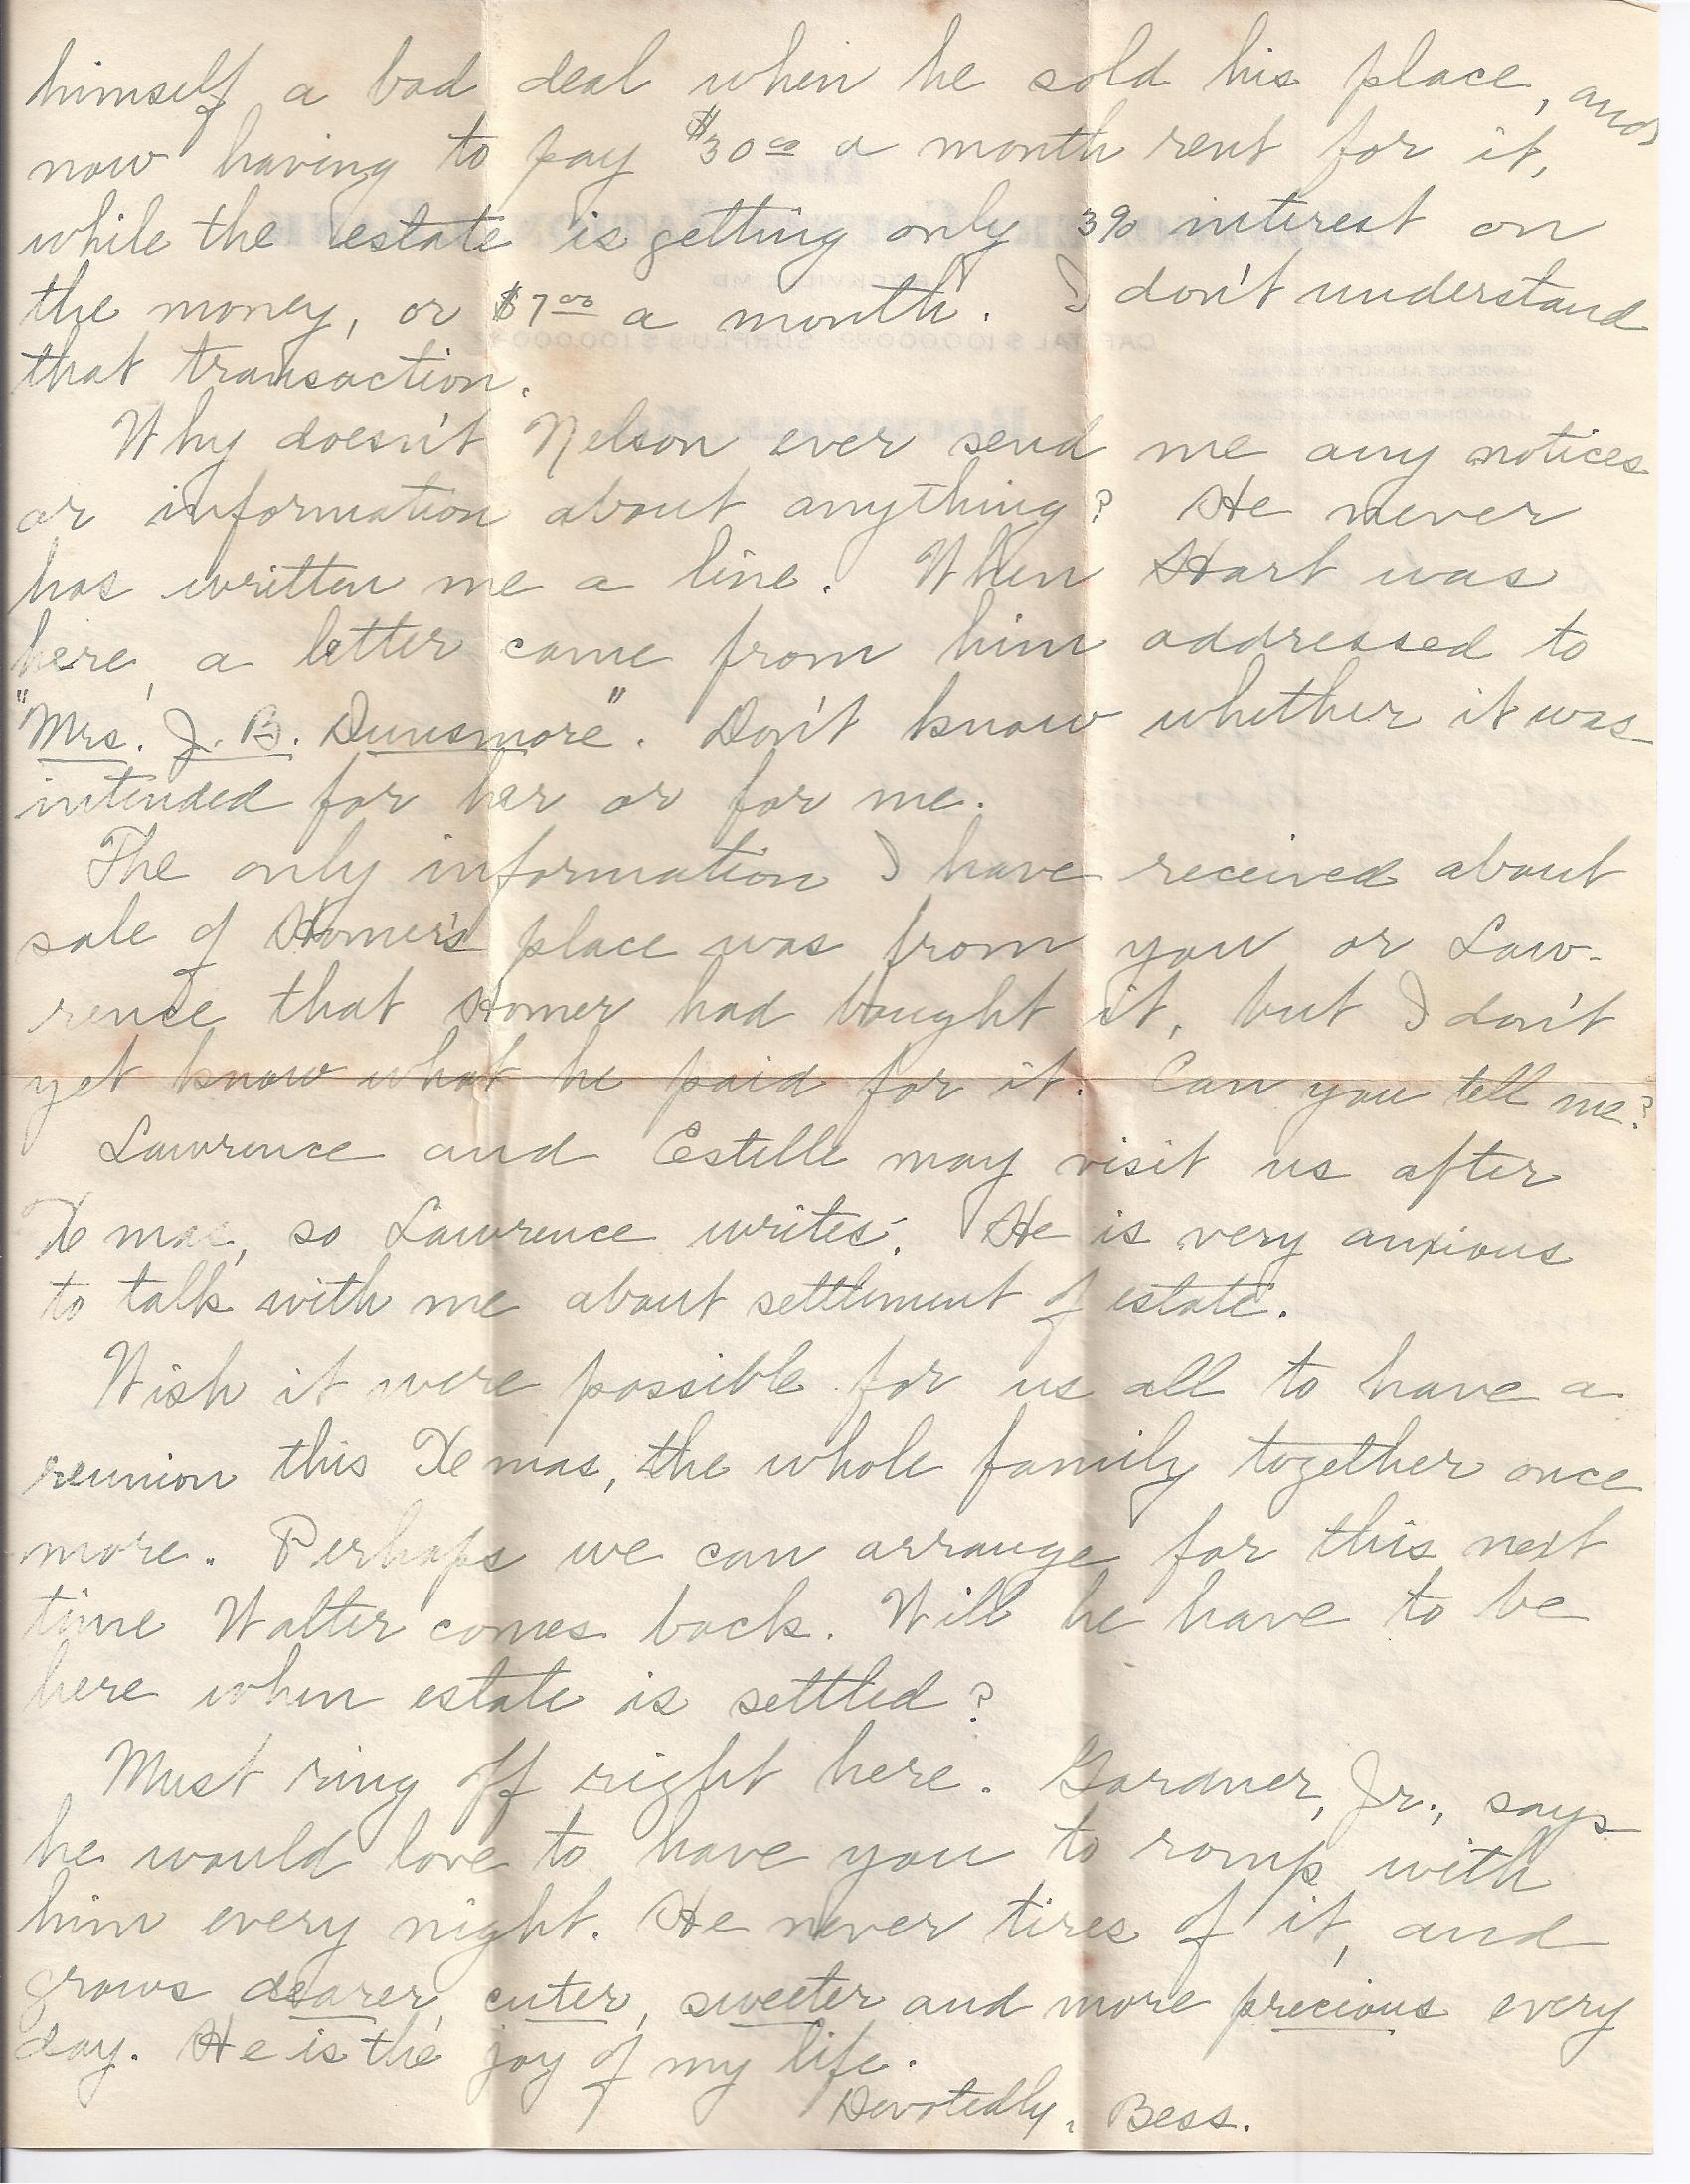 himself a bad deal when he sold his place, and
now having to pay $30 00 a month rent for it,
while the estate is getting only 3% interest on
the money, or $7 00 a month. I don't understand
that transaction.
Why doesn't Nelson ever send me any notices
or information about anything? He never
has written me a line. When Hart was
here, a letter came from him addressed to
"Mrs. J. B. Dunsmore". Don't know whether it was
intended for her or for me.
The only information I have received about
sale of Homer's place was from you or Law-
rence that Homer had bought it, but I don't
yet know what he paid for it. Can you tell me?
Lawrence and Estelle may visit us after
Xmas, so Lawrence writes. He is very anxious
to talk with me about settlement of estate.
Wish it were possible for us all to have a
reunion this Xmas, the whole family together once
more. Perhaps we can arrange for this next
time Walter comes back. Will he have to be
here when estate is settled?
Must ring off right here. Gardner, Jr., says
he would love to have you to romp with
him every night. He never tires of it, and
grows dearer, cuter, sweeter and more precious every
day. He is the joy of my life.
Devotedly, Bess.